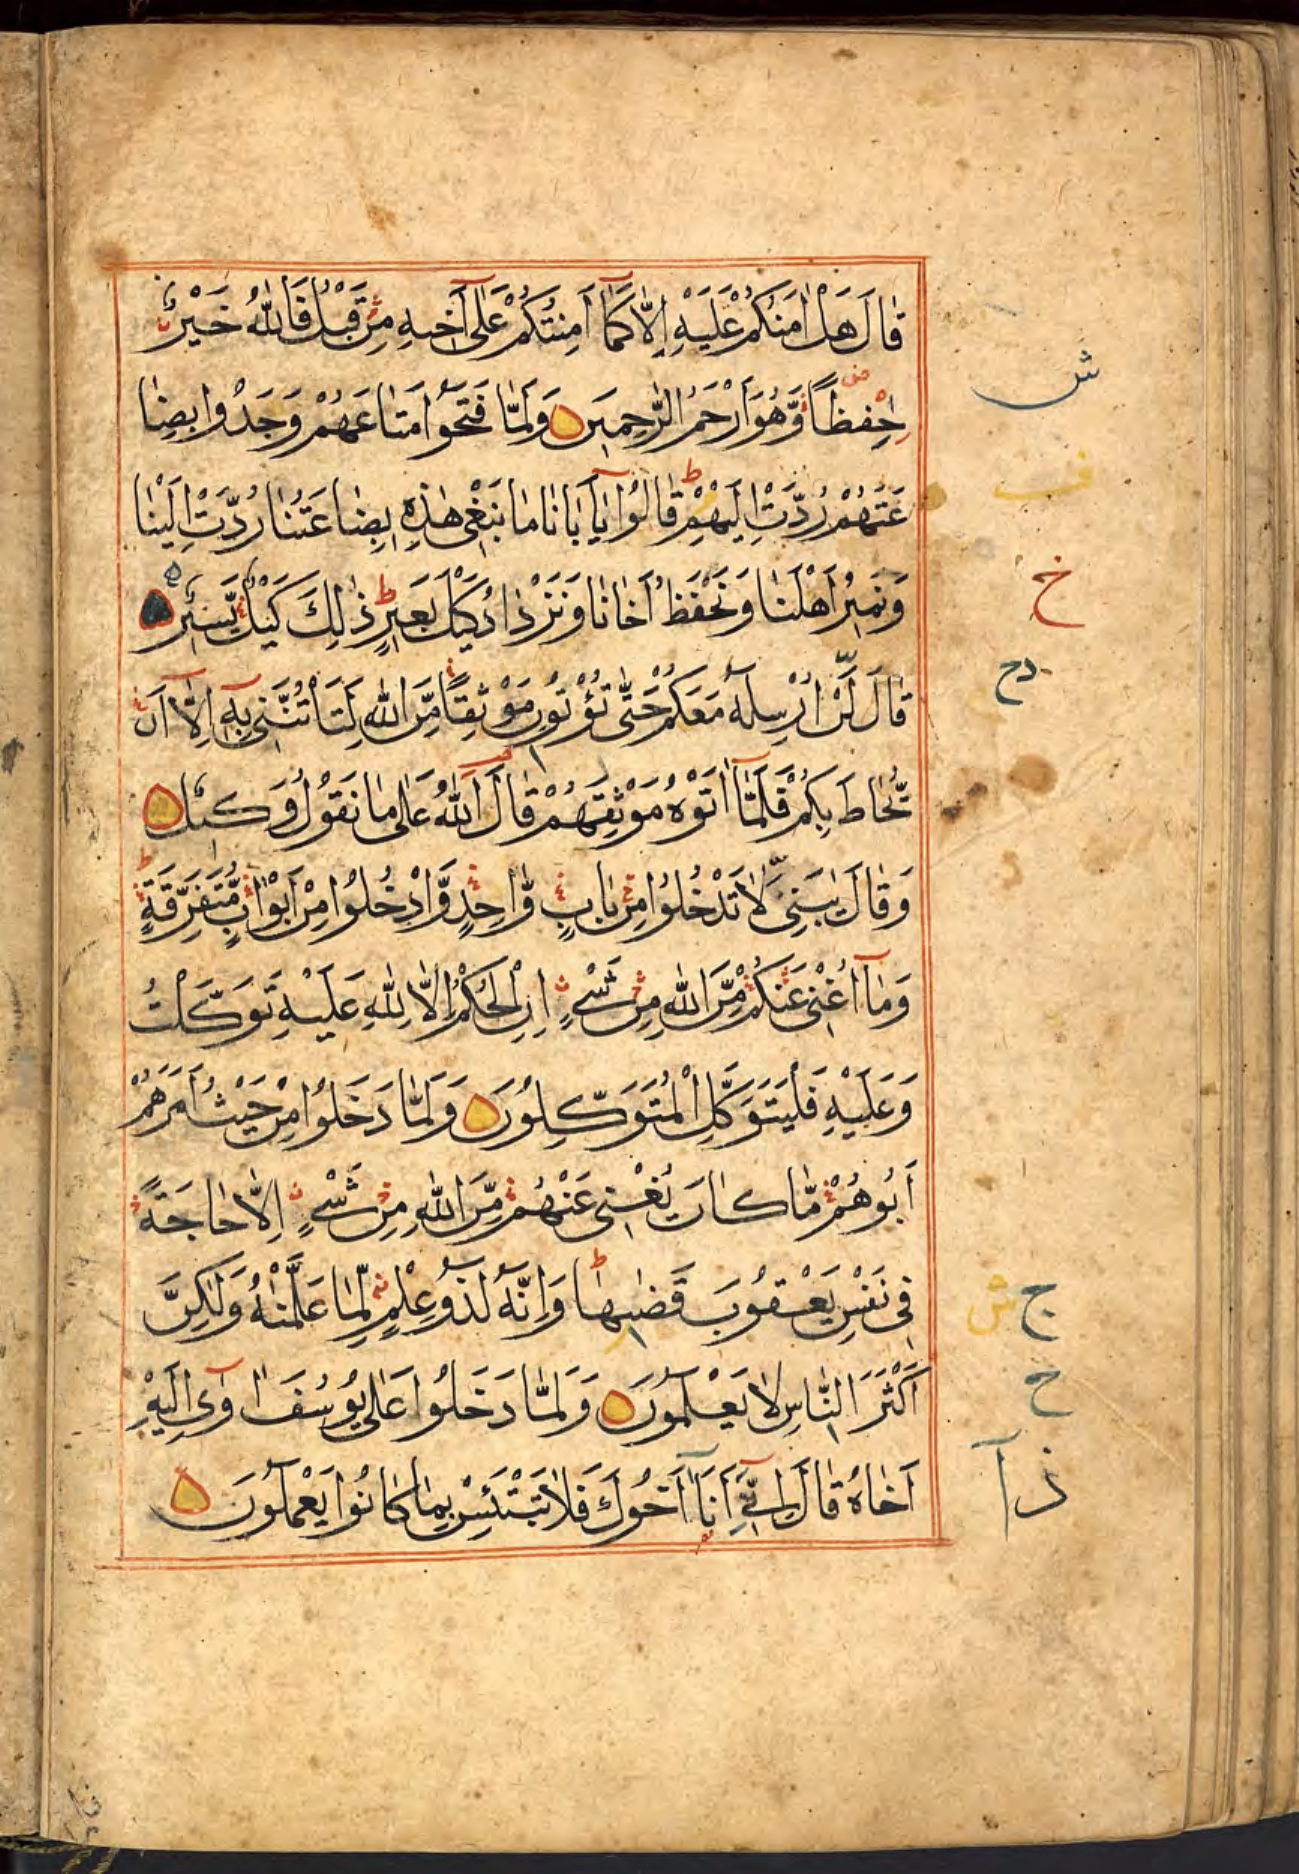 قَالَ هَلْ اٰمَنُكُمْ عَلَيْهِ اِلَّا كَمَٓا اَمِنْتُكُمْ عَلٰٓى اَخِيهِ مِنْ قَبْلُ فَاللّٰهُ خَيْرٌ
حٰفِظًا وَّهُوَ اَرْحَمُ الرّٰحِمِيْنَ وَلَمَّا فَتَحُوْا مَتَاعَهُمْ وَجَدُوْا بِضَا
عَتَهُمْ رُدَّتْ اِلَيْهِمْ ط قَالُوْا يٰٓاَبَانَا مَا نَبْغِىْ هٰذِهِ بِضَاعَتُنَا رُدَّتْ اِلَيْنَا
وَنَمِيْرُ اَهْلَنَا وَنَحْفَظُ اَخَانَا وَنَزْدَادُ كَيْلَ بَعِيْرٍ ط ذٰلِكَ كَيْلٌ يَّسِيْرٌ
قَالَ لَنْ اُرْسِلَهُ مَعَكُمْ حَتّٰى تُؤْتُوْنِ مَوْثِقًا مِّنَ اللّٰهِ لَتَاْتُنَّنِىْ بِهٖٓ اِلَّآ اَنْ
يُّحَاطَ بِكُمْ فَلَمَّآ اٰتَوْهُ مَوْثِقَهُمْ قَالَ اللّٰهُ عَلٰى مَا نَقُوْلُ وَكِيْلٌ
وَقَالَ يٰبَنِىَّ لَا تَدْخُلُوْا مِنْ بَابٍ وَّاحِدٍ وَّادْخُلُوْا مِنْ اَبْوَابٍ مُّتَفَرِّقَةٍ ط
وَمَآ اُغْنِىْ عَنْكُمْ مِّنَ اللّٰهِ مِنْ شَىْءٍ اِنِ الْحُكْمُ اِلَّا لِلّٰهِ عَلَيْهِ تَوَكَّلْتُ
وَعَلَيْهِ فَلْيَتَوَكَّلِ الْمُتَوَكِّلُوْنَ وَلَمَّا دَخَلُوْا مِنْ حَيْثُ اَمَرَهُمْ
اَبُوْهُمْ مَّا كَانَ يُغْنِىْ عَنْهُمْ مِّنَ اللّٰهِ مِنْ شَىْءٍ اِلَّا حَاجَةً
فِىْ نَفْسِ يَعْقُوْبَ قَضٰىهَا ط وَاِنَّهُ لَذُوْ عِلْمٍ لِّمَا عَلَّمْنٰهُ وَلٰكِنَّ
اَكْثَرَ النَّاسِ لَا يَعْلَمُوْنَ وَلَمَّا دَخَلُوْا عَلٰى يُوْسُفَ اٰوٰٓى اِلَيْهِ
اَخَاهُ قَالَ اِنِّىٓ اَنَا۠ اَخُوْكَ فَلَا تَبْتَئِسْ بِمَا كَانُوْا يَعْمَلُوْنَ
ش
ف
خ
دح
ج ش
ح